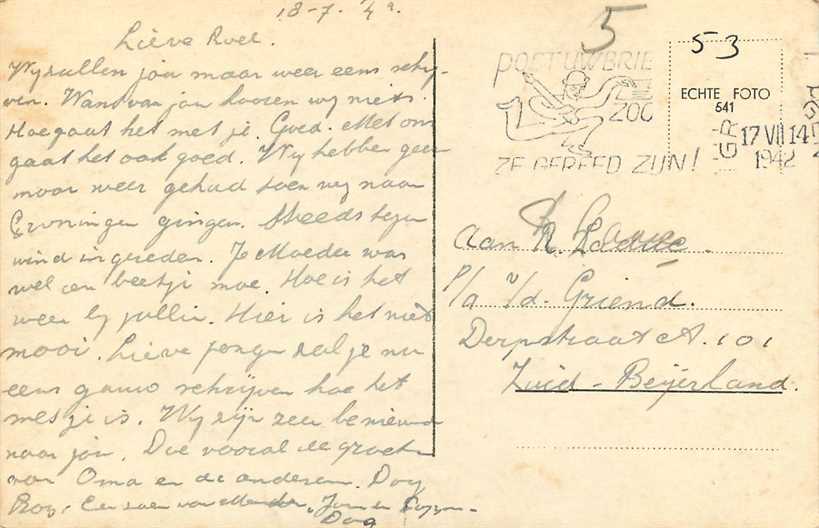 18-7-42.
Lieve Roel.
Wij zullen jou maar weer eens schrij-
ven. Want van jou hooren wij niets.
Hoe gaat het met je. Goed. Met ons
gaat het ook goed. Wij hebben geen
mooi weer gehad toen wij naar
Groningen gingen. Steeds tegen
wind in gereden. Je Moeder was
wel een beetje moe. Hoe is het
weer bij jullie. Hier is het niet
mooi. Lieve jongen zal je nu
eens gauw schrijven hoe het
met je is. Wij zijn zeer benieuwd
naar jou. Doe vooral de groeten
van Oma en de anderen. Dag
Een zoen van Moeder, Jan en
Dag
5
53
POST UW BRIE
ZOO
ZE BEREED ZIJN!
ECHTE FOTO
541
GR
17 VII 14
1942
Aan R.
p/a v/d. Griend.
Dorpstraat A. 101
Zuid-Beijerland.